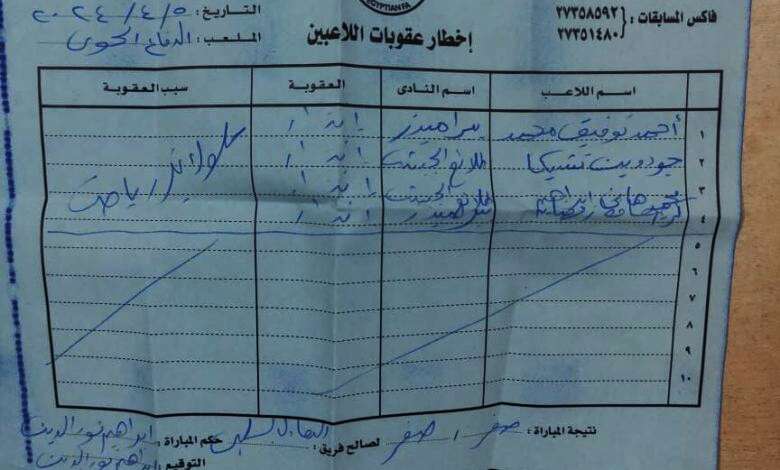 EGYPTIAN FA
فاكس المسابقات : ٢٧٣٥٨٥٩٢
٢٧٣٥١٤٨٠
إخطار عقوبات اللاعبين
التاريخ : ٢٠٢٤/٤/٥
الملعب : الدفاع الجوى
اسم اللاعب اسم النادى العقوبة سبب العقوبة
١ أحمد توفيق محمد بيراميدز إنذار
٢ جودوين تشيكا طلائع الجيش إنذار
٣ محمد إنذار
٤ كريم إنذار
سلوك غير رياضى
٥
٦
٧
٨
٩
١٠
نتيجة المباراة : صفر / صفر لصالح فريق : التعادل السلبى حكم المباراة : ابراهيم نور الدين
التوقيع : ابراهيم نور الدين